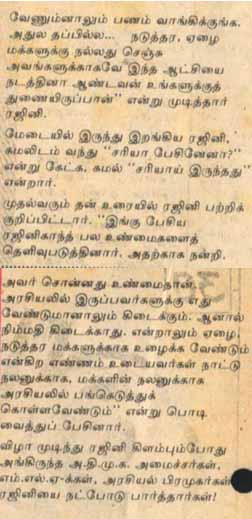 வேணும்னாலும் பணம் வாங்கிக்குங்க.
அதுல தப்பில்ல... நடுத்தர, ஏழை
மக்களுக்கு நல்லது செஞ்சு
அவங்களுக்காகவே இந்த ஆட்சியை
நடத்தினா ஆண்டவன் உங்களுக்குத்
துணையிருப்பான்" என்று முடித்தார்
ரஜினி.
மேடையில் இருந்து இறங்கிய ரஜினி,
கமலிடம் வந்து "சரியா பேசினேனா?"
என்று கேட்க, கமல் "சரியாய் இருந்தது"
என்றார்.
முதல்வரும் தன் உரையில் ரஜினி பற்றிக்
குறிப்பிட்டார். "இங்கு பேசிய
ரஜினிகாந்த் பல உண்மைகளைத்
தெளிவுபடுத்தினார். அதற்காக நன்றி.
அவர் சொன்னது உண்மைதான்.
அரசியலில் இருப்பவர்களுக்கு எது
வேண்டுமானாலும் கிடைக்கும். ஆனால்
நிம்மதி கிடைக்காது. என்றாலும் ஏழை,
நடுத்தர மக்களுக்காக உழைக்க வேண்டும்
என்கிற எண்ணம் உடையவர்கள் நாட்டு
நலனுக்காக, மக்களின் நலனுக்காக
அரசியலில் பங்கெடுத்துக்
கொள்ளவேண்டும்" என்று பொடி
வைத்துப் பேசினார்.
விழா முடிந்து ரஜினி கிளம்பும்போது
அங்கிருந்த அ.தி.மு.க. அமைச்சர்கள்,
எம்.எல்.ஏ-க்கள், அரசியல் பிரமுகர்கள்
ரஜினியை நட்போடு பார்த்தார்கள்!